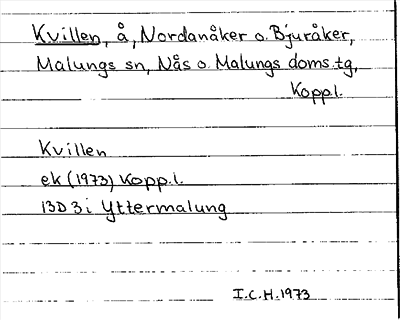 Kvillen, å, Nordanåker o. Bjuråker,
Malungs sn, Nås o. Malungs doms.tg,
Koppl.
Kvillen
ek (1973) Koppl.
13D 3i Yttermalung
I.C.H. 1973